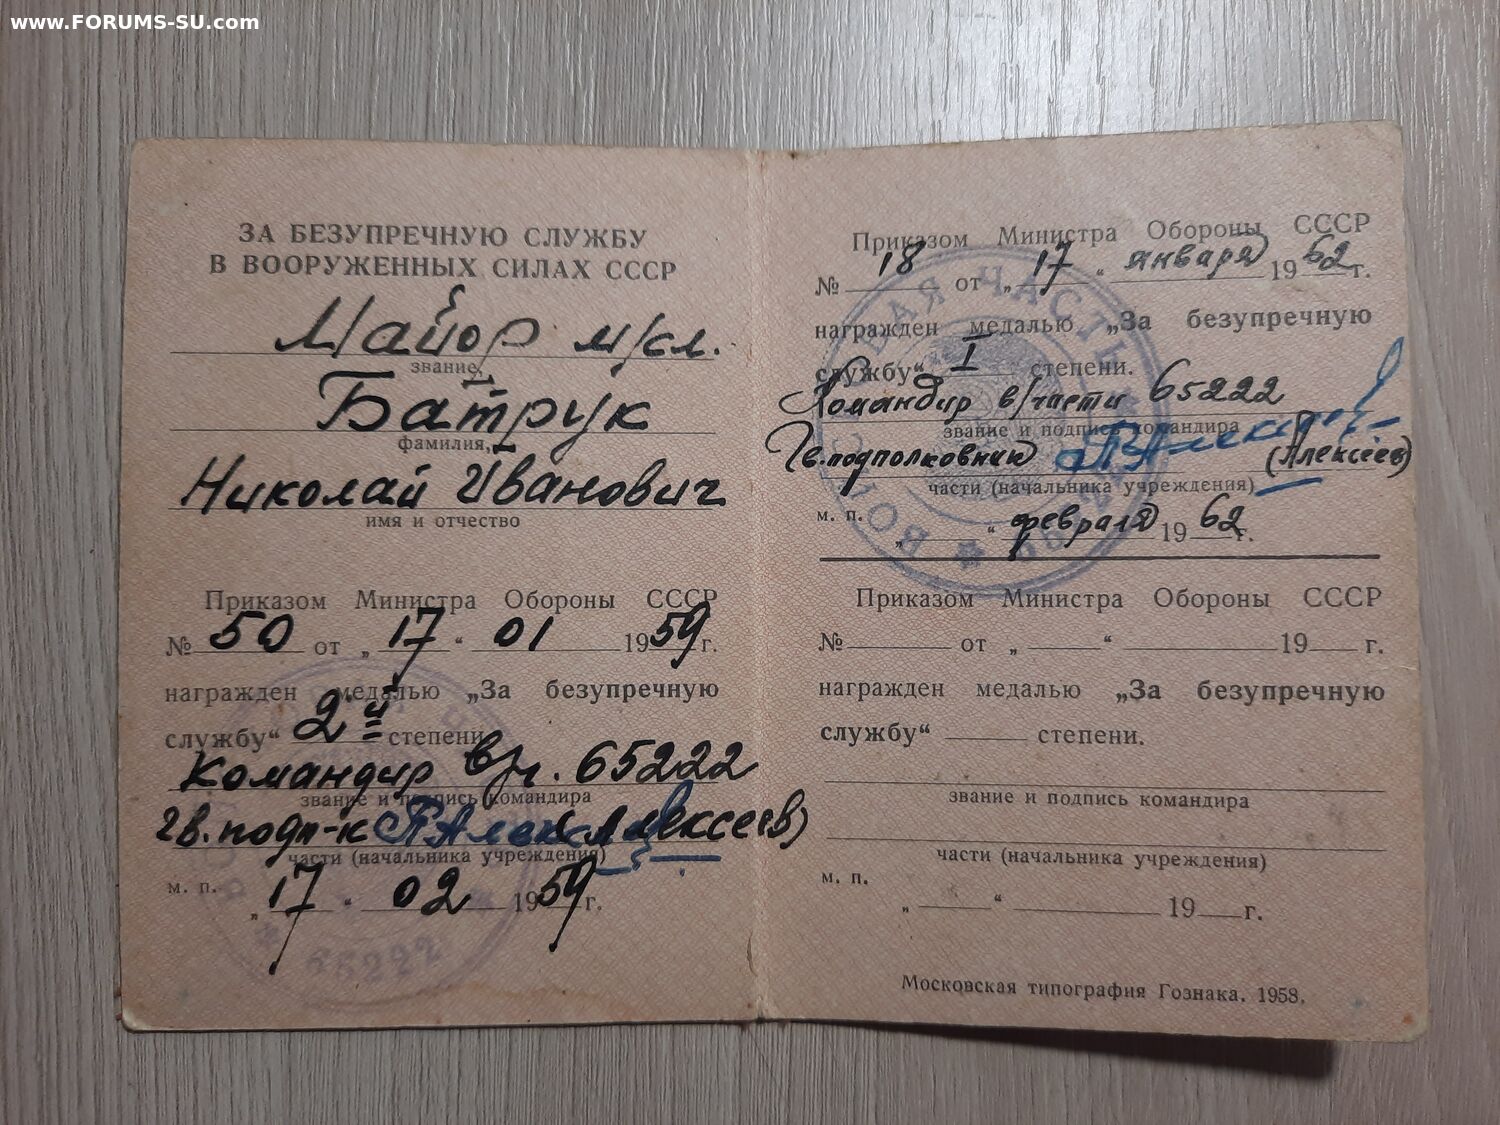 www.FORUMS-SU.com
ЗА БЕЗУПРЕЧНУЮ СЛУЖБУ
В ВООРУЖЕННЫХ СИЛАХ СССР
Майор м/сл.
звание,
Батрук
фамилия,
Николай Иванович
имя и отчество
Приказом Министра Обороны СССР
№ 50 от „17“ 01 1959 г.
награжден медалью „За безупречную
службу“ 2й степени
Командир в/ч. 65222
звание и подпись командира
гв. подп-к (Алексеев)
части (начальника учреждения)
м. п.
„17“ 02 1959 г.
65222
Приказом Министра Обороны СССР
№ 18 от „17“ января 1962 г.
награжден медалью „За безупречную
службу“ I степени.
Командир в/части 65222
звание и подпись командира
Гв. подполковник (Алексеев)
части (начальника учреждения)
м. п.
„ “ февраля 1962 г.
ВОЙСКОВАЯ ЧАСТЬ
Приказом Министра Обороны СССР
№ от „ “ 19 г.
награжден медалью „За безупречную
службу“ степени.
звание и подпись командира
части (начальника учреждения)
м. п.
„ “ 19 г.
Московская типография Гознака. 1958.